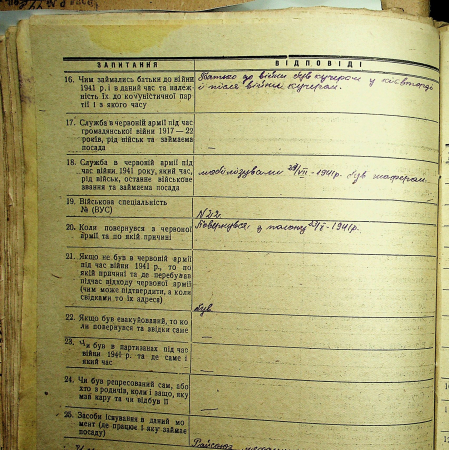 ЗАПИТАННЯ
ВІДПОВІДІ
16. Чим займались батьки до війни
1941 р. і в даний час та належ-
ність їх до комуністичної пар
тії і з якого часу
Батько до війни був кучером у
й після війни кучером.
17. Служба в червоній армії під час
громадянської війни 1917—22
років, рід військ та займаема
посада
—
18. Служба в червоній армії під
час війни 1941 року, який час,
рід військ, останне військове
звання та займаема посада
мобілізувами 29/VII - 1941р. був шофером
19. Військова спеціальність
№ (ВУС)
N 22
20. Коли повернувся з червоної
армії та по якій причині
Повернувся з полону 1941р.
21. Якщо не був в червоній армії
під час війни 1941 р., то по
якій причині та де перебував
підчас відходу червоної армії
(чим може підтвердити, а коли
свідками то їх адреса)
був
22. Якщо був евакуйований, то ко
ли повернувся та звідки саме
—
23. Чи був в партизанах під час
війни 1941 р. та де саме і
який час
—
24. Чи був репресований сам, або
хто з родичів, коли і защо, яку
мав кару та чи відбув її
—
25. Засоби існування в даний мо
мент (де працює і яку займає
посаду)
Райсоюз